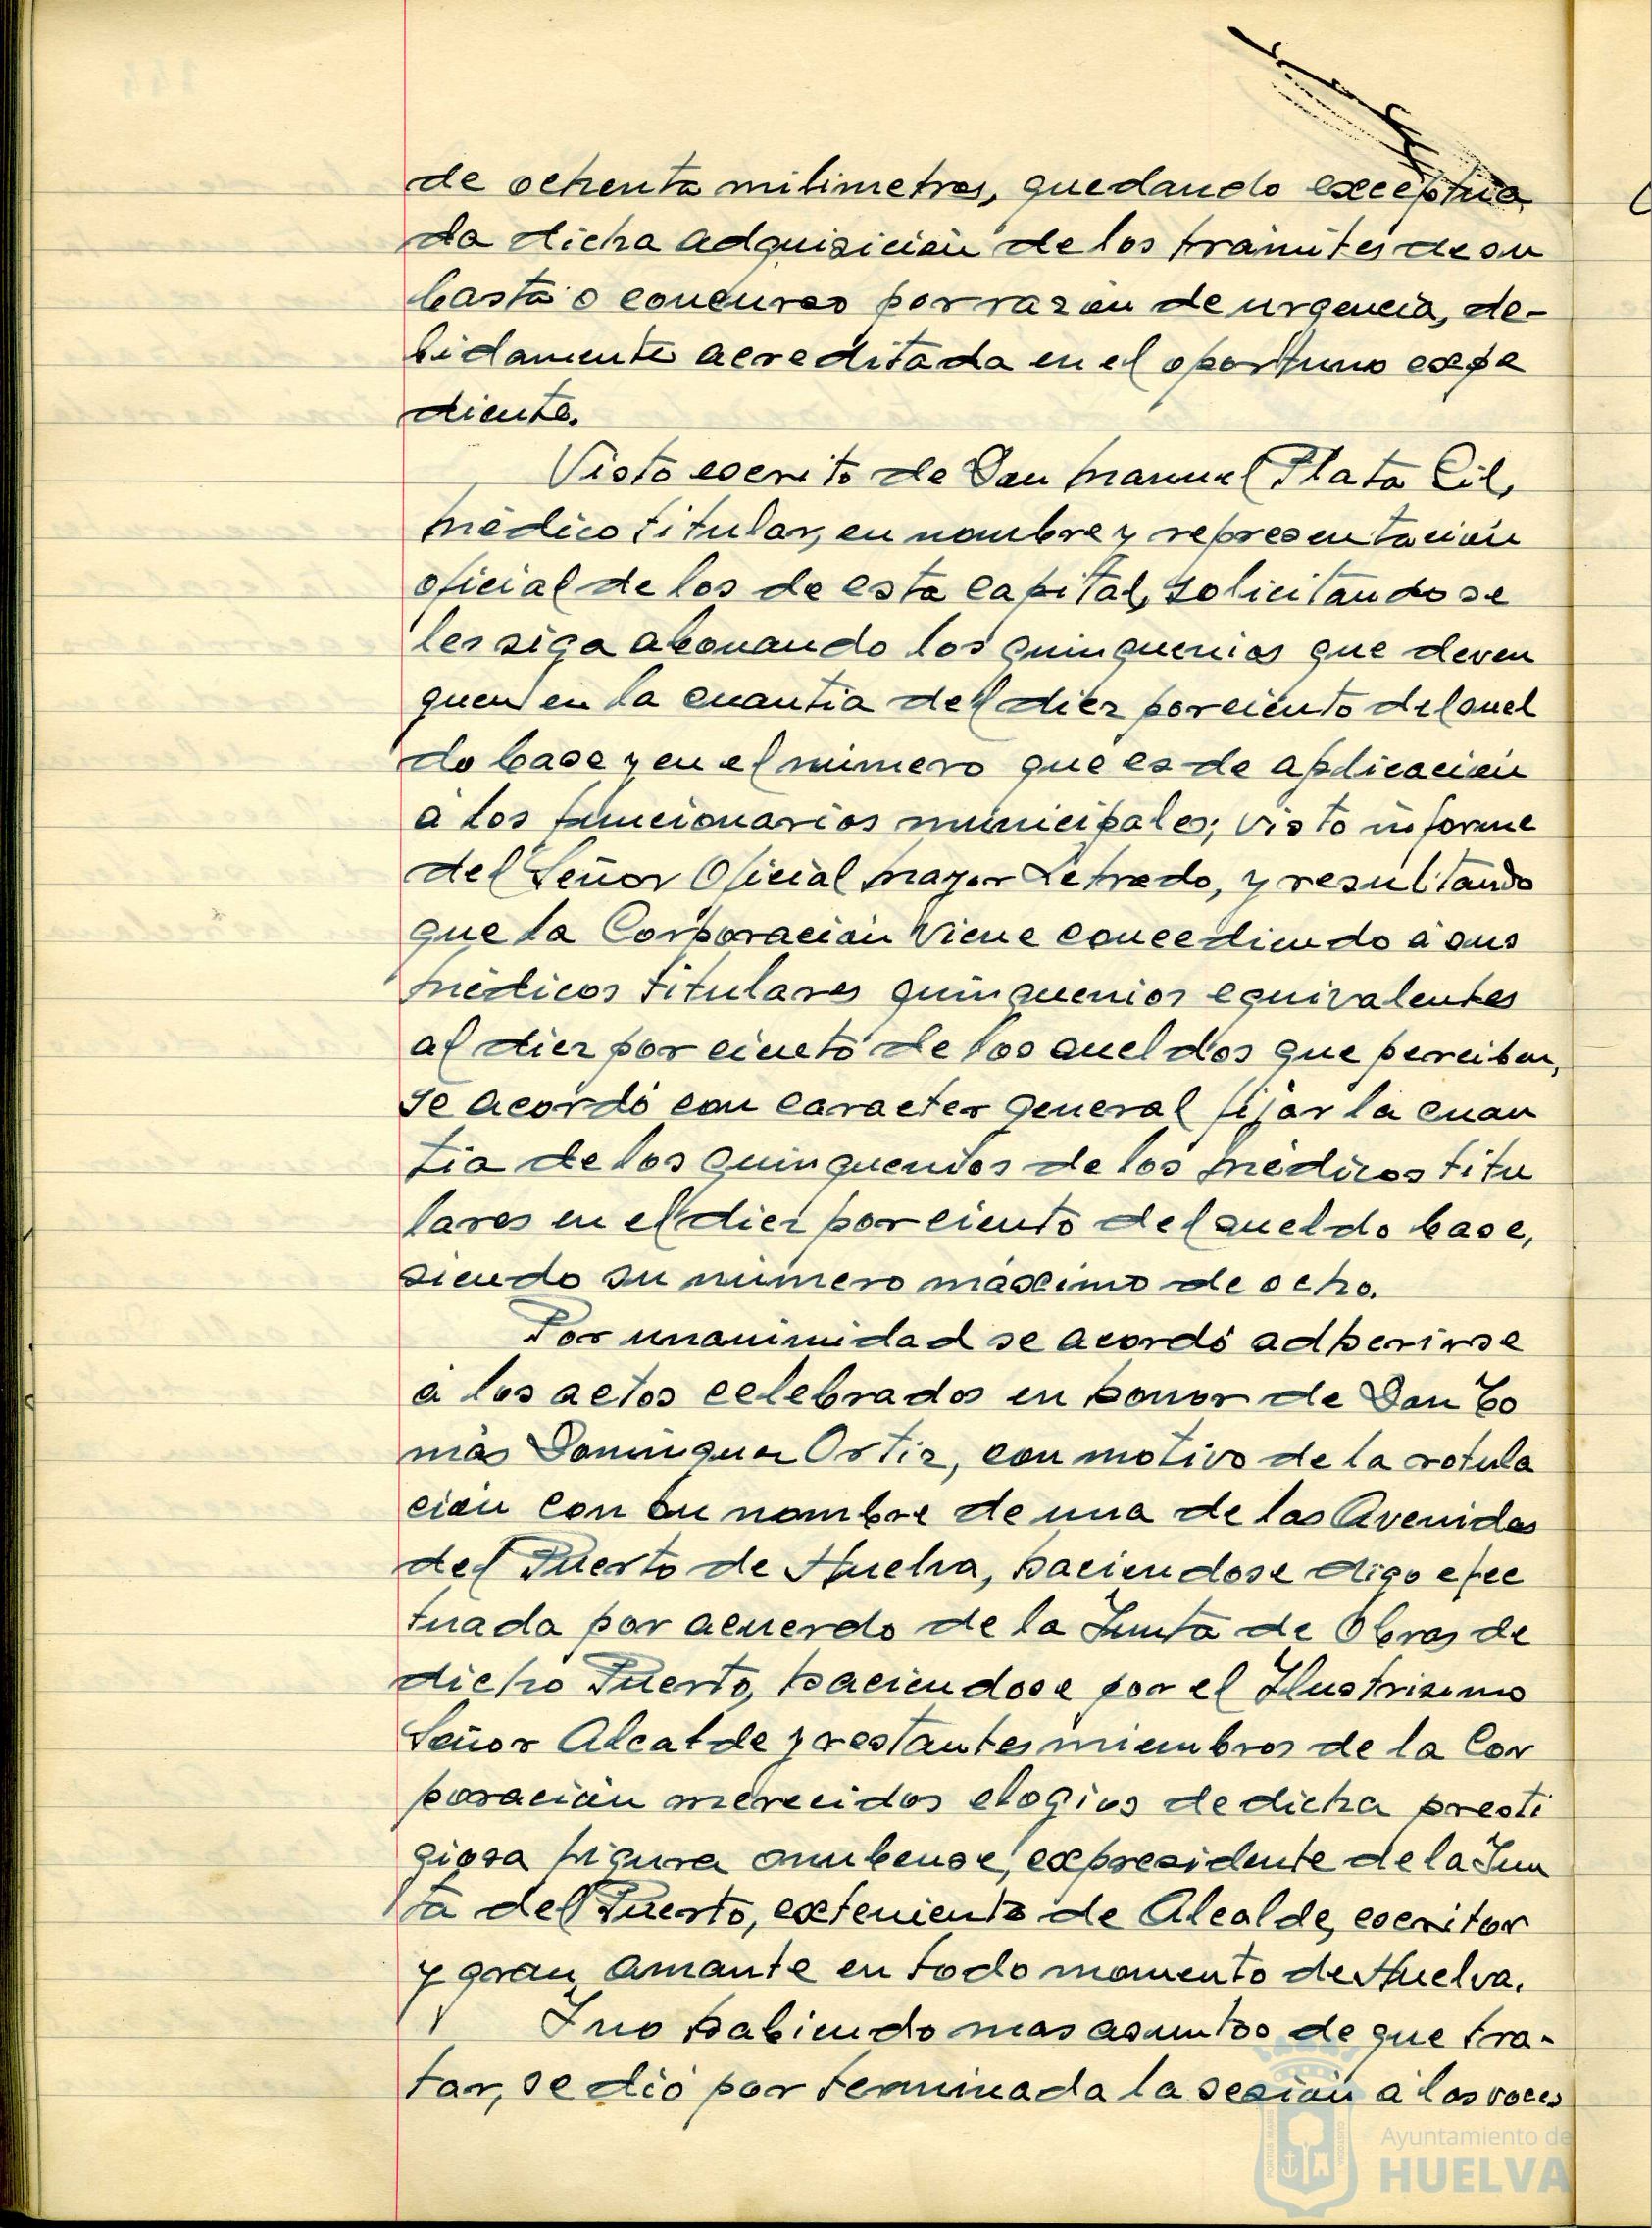 de ochenta milimetros, quedando exceptua
da dicha adquisición de los trámites de su
basta o concurso por razón de urgencia, de-
bidamente acreditada en el oportuno expe
diente.
Visto escrito de Don Manuel Plata Gil,
médico titular, en nombre y representación
oficial de los de esta capital, solicitando se
les siga abonando los quinquenios que deven
guen en la cuantia del diez por ciento del suel
do base y en el número que es de aplicación
á los funcionarios municipales; visto informe
del Señor Oficial Mayor Letrado, y resultando
que la Corporación viene concediendo á sus
médicos titulares quinquenios equivalentes
al diez por ciento de los sueldos que perciben,
se acordó con caracter general fijar la cuan
tia de los quinquenios de los médicos titu
lares en el diez por ciento del sueldo base,
siendo su número máximo de ocho.
Por unanimidad se acordó adherirse
á los actos celebrados en honor de Don To
más Dominguez Ortiz, con motivo de la rotula
ción con su nombre de una de las Avenidas
del Puerto de Huelva, haciendose digo efec
tuada por acuerdo de la Junta de Obras de
dicho Puerto, haciendose por el Ilustrisimo
Señor Alcalde y restantes miembros de la Cor
poración merecidos elogios de dicha presti
giosa figura onubense, expresidente de la Jun
ta del Puerto, exteniente de Alcalde, escritor
y gran amante en todo momento de Huelva.
Y no habiendo mas asuntos de que tra-
tar, se dió por terminada la sesión á las voces
Ayuntamiento de
HUELVA